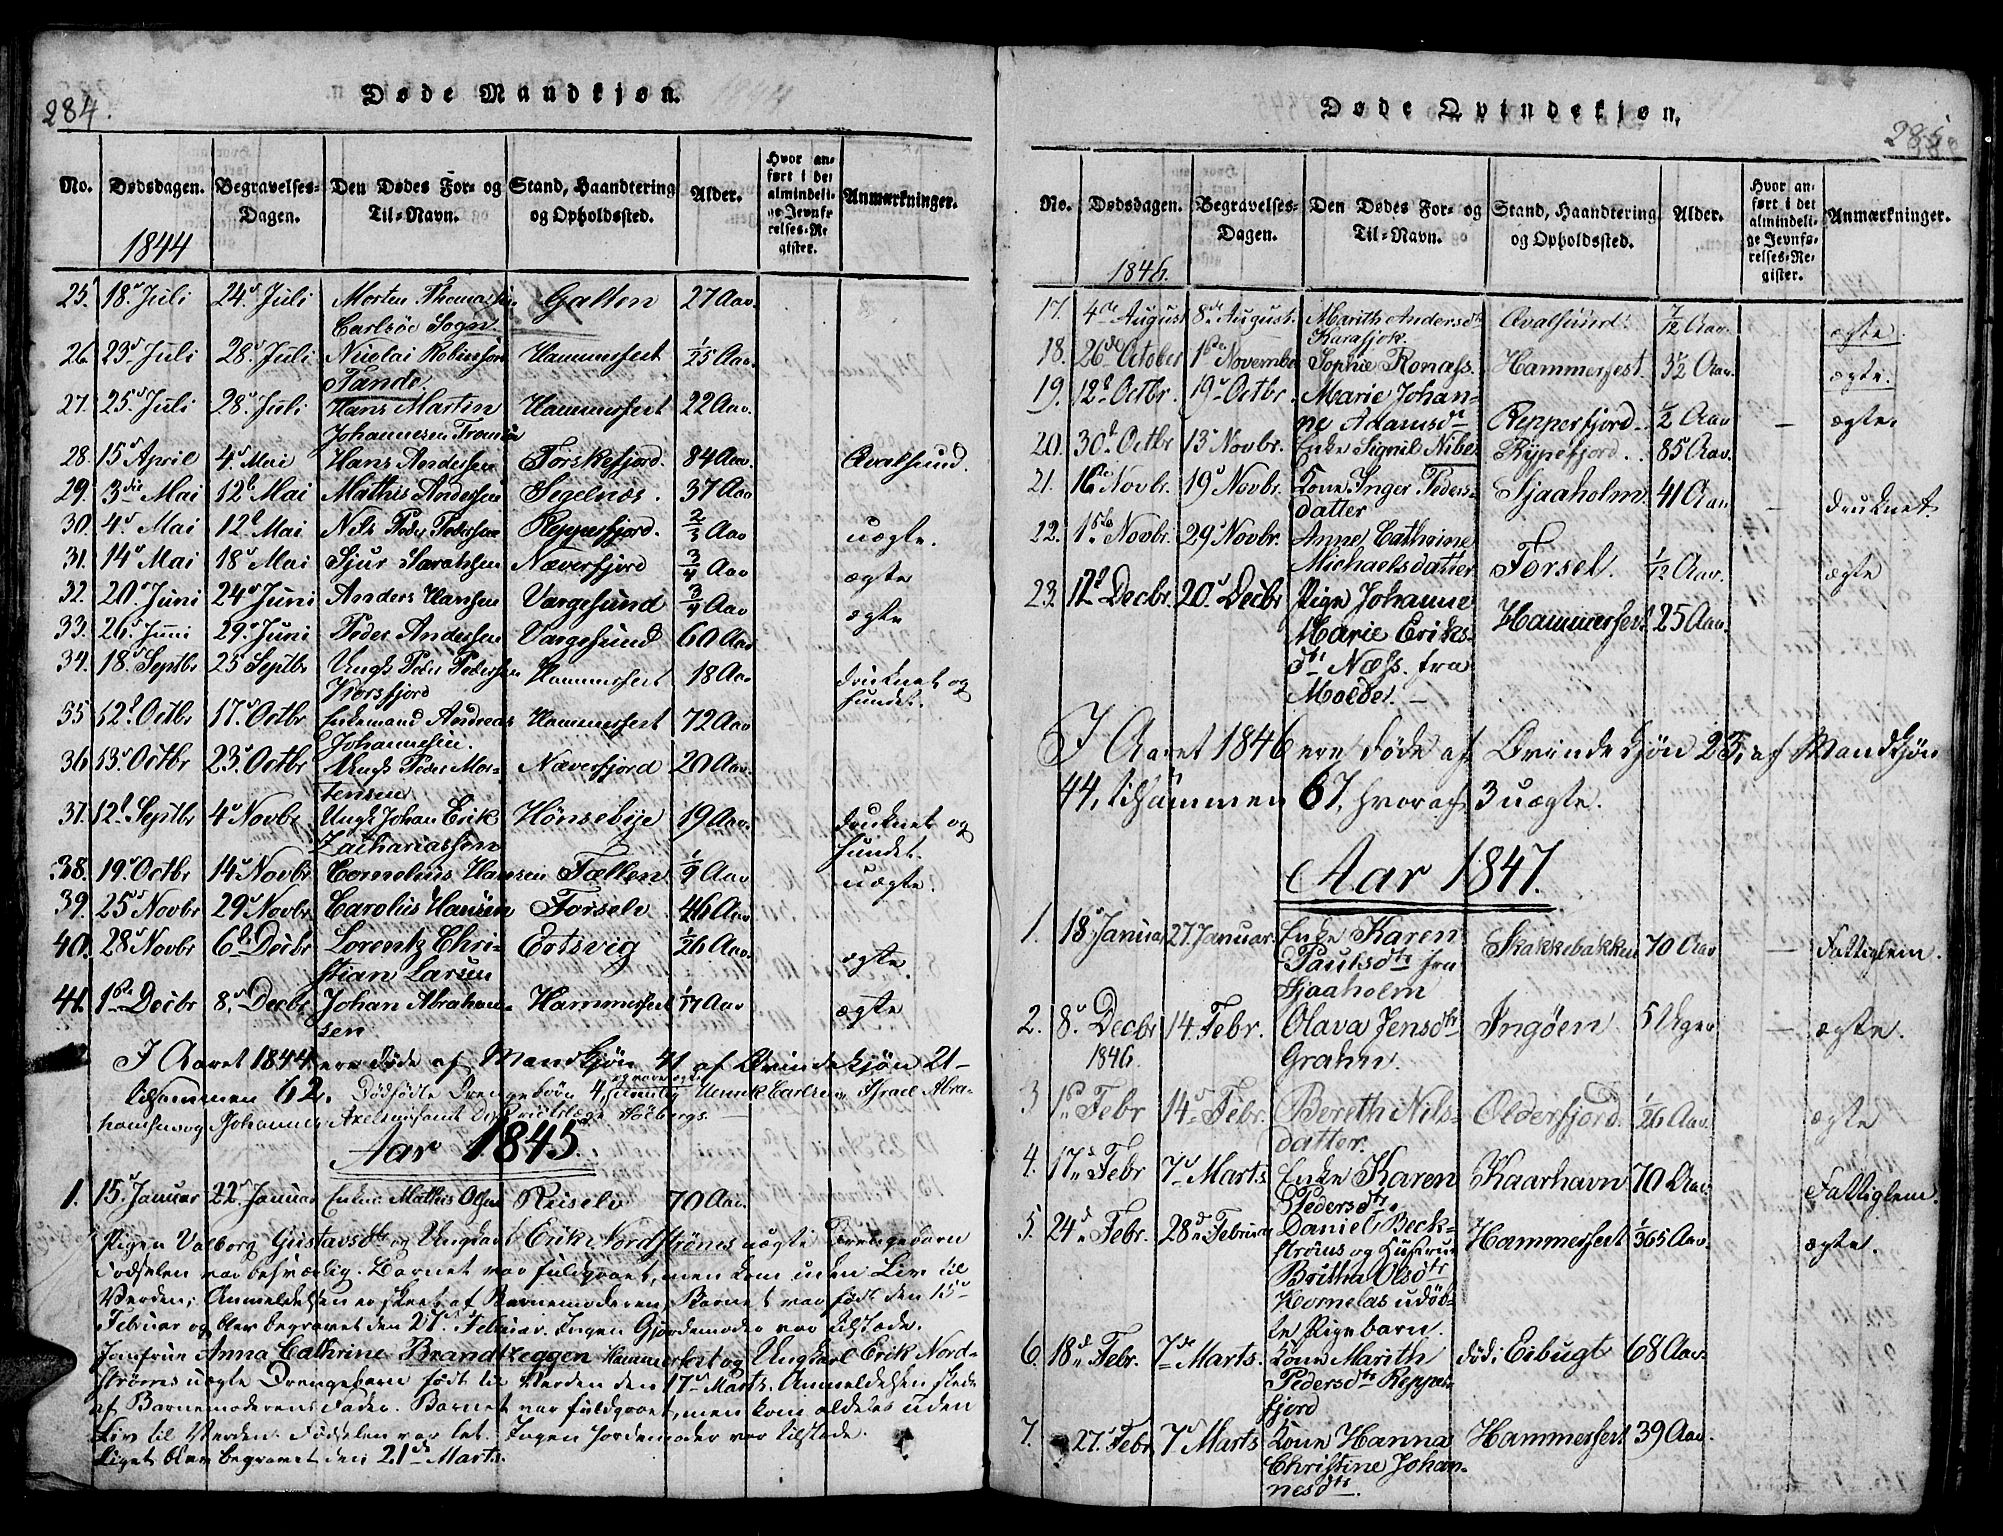 284.
Døde Mandkjøn. 1844
No. Dødsdagen. Begravelses-Dagen. Den Dødes For- og Til-Navn. Stand, Haandtering og Opholdssted. Alder. Hvor anført i det almindelige Jevnførelses-Register. Anmærkninger.
1844
25. 18 Juli 24 Juli Morten Thomassen Galten 27 Aar.
Carlsöe Sogn
26. 23 Juli 28 Juli Nicolai Robinsön Hammerfest 1/25 Aar.
Tande.
27. 25 Juli 28 Juli Hans Martin Hammerfest 22 Aar.
Johannesen Tromsöe
28. 15 April 4 Mai Hans Andersen Torskefjord. 84 Aar. Qvalsund.
29. 3die Mai 12 Mai Mathis Andersen Segelnæs. 37 Aar
30. 4 Mai 12 Mai Nils Peder Pedersen Repperfjord. 2/3 Aar uægte.
31. 14 Mai 18 Mai Sjur Sarahsen Næverfjord 3/4 Aar ægte
32. 20 Juni 24 Juni Anders Hansen Vargesund 3/4 Aar ægte
33. 26 Juni 29 Juni Peder Andersen Vargesund 60 Aar
34. 18 Septbr 25 Septbr Ungk Peder Pedersen Hammerfest 18 Aar druknet og
Korsfjord fundet.
35 12 Octbr 17 Octbr Enkemand Andreas Hammerfest 72 Aar
Johannesen.
36 13 Octbr 23 Octbr Ungk Peder Mor- Næverfjord 20 Aar.
tensen
37. 12 Septbr 4 Novbr Ungk Johan Erik Hönsebye 19 Aar. druknet og
Zachariassen fundet.
38. 19 Octbr 14 Novbr Cornelius Hansen Fællen 1/9 Aar uægte.
39. 25 Novbr 29 Novbr Carolus Hansen Forselv 46 Aar
40. 28 Novbr 6 Decbr Lorentz Chri- Eotsvig 1/26 Aar. ægte.
stian Larsen
41. 1ste Decbr 8 Decbr Johan Abraham- Hammerfest 1/17 Aar ægte
sen
I Aaret 1844 ere døde af Mandkjøn 41 af Qvindekjøn 21-
tilsammen 62. Dödfödte Drengebörn 4, nemlig Unnik Carlsen, Israel Abra-
hamsen og Johannes
Aar 1845.
1. 15 Januar 22 Januar Enkem. Mathis Olsen Reiselv 70 Aar.
Pigen Valborg Gustavsdtr og Ungkarl Erik Nordströms uægte Drengebarn
Fødselen var besværlig. Barnet var fuldbaaret, men kom uden Liv til
Verden; Anmeldelsen er skeet af Barnemoderen, Barnet var født den 15
Februar og blev begravet den 21 Februar. Ingen Gjordemoder var tilstæde.
Jomfrue Anna Cathrine Brandtzeggen Hammerfest og Ungkarl Erik Nord-
ströms uægte Drengebarn født til Verden den 17 Marts. Anmeldelsen skede
af Barnemoderens Fader. Barnet var fuldbaaret, men kom aldeles uden
Liv til Verden. Fødselen var let. Ingen Jordemoder var tilstæde.
Liget blev begravet den 21de Marts.
285
Døde Qvindekjøn.
No. Dødsdagen. Begravelses-Dagen. Den Dødes For- og Til-Navn. Stand, Haandtering og Opholdssted. Alder. Hvor anført i det almindelige Jevnførelses-Register. Anmærkninger.
1846.
17. 4de August 8de August. Marith Andersdtr Qvalsund 7/12 Aar. ægte.
Karasjok.
18. 26de October 1ste November Sophie Ronæss. Hammerfest. 3 1/2 Aar. ægte.
19. 12 Octbr. 19 Octbr. Marie Johan-
ne Adamsdtr Repperfjord. 1/2 Aar - ægte.
20. 30 Octbr 13 Novbr. Enke Signil Nibe Rypefjord. 85 Aar.
21. 16 Novbr. 19 Novbr. Kone Inger Peders- Sjaaholm 41 Aar - druknet.
datter
22. 1ste Novbr. 29 Novbr. Anne Cathrine
Michaelsdatter Forsel. 1/12 Aar. ægte
23. 12 Decbr 20 Decbr Pige Johanne
Marie Eriks- Hammerfest 25 Aar.
dtr Næss. fra
Molde. -
I Aaret 1846 ere døde af Qvindekjøn 23, af Mandkjøn
44, tilsammen 67, hvoraf 3 uægte.
Aar 1847.
1. 18 Januar 27. Januar. Enke Karen Skakkebakken 70 Aar - Fattiglem.
Paulsdtr fra
Sjaaholm
2. 8 Decbr 14. Febr. Olava Jensdtr Ingöen 5 Uger - ægte.
1846. Grahn.
3 1ste Febr 14 Febr. Bereth Nils- Olderfjord 1/26 Aar. ægte
datter.
4. 17 Febr 7 Marts. Enke Karen Kaarhavn 70 Aar. Fattiglem.
Pedersdtr.
5. 24 Febr. 28 Februar Daniel Beck- Hammerfest 1/365 Aar. ægte.
ströms og Hustrue
Britha Olsdtr
Kornelas udöb-
te Pigebarn.
6. 18 Febr. 7de Marts. Kone Marith död i Eibugt 68 Aar
Pedersdtr Repper-
fjord
7. 27 Febr 7 Marts Kone Hanna Hammerfest 39 Aar.
Christine Johan-
nesdtr.